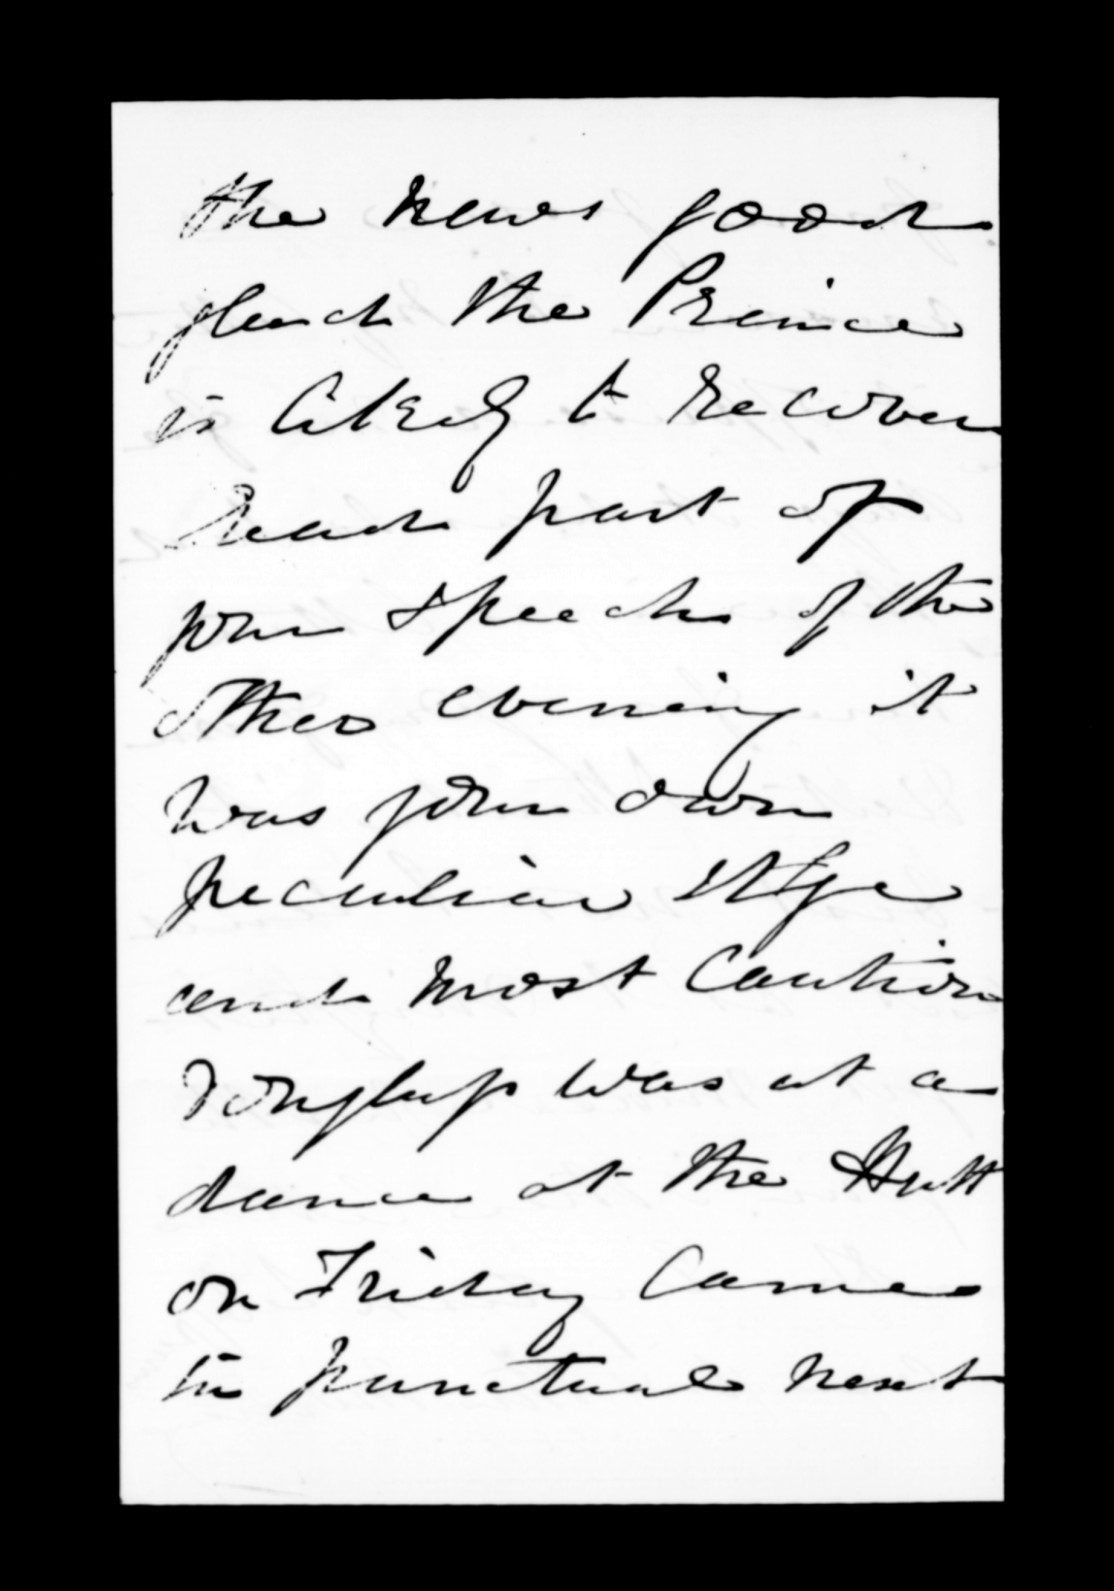 the news good
glad the Prince
is likely to recover
Read part of
your speech of the
other evening it
was your own
peculiar style
and most cautious
Douglas was at a
dance at the Hutt
on Friday came
in punctual next